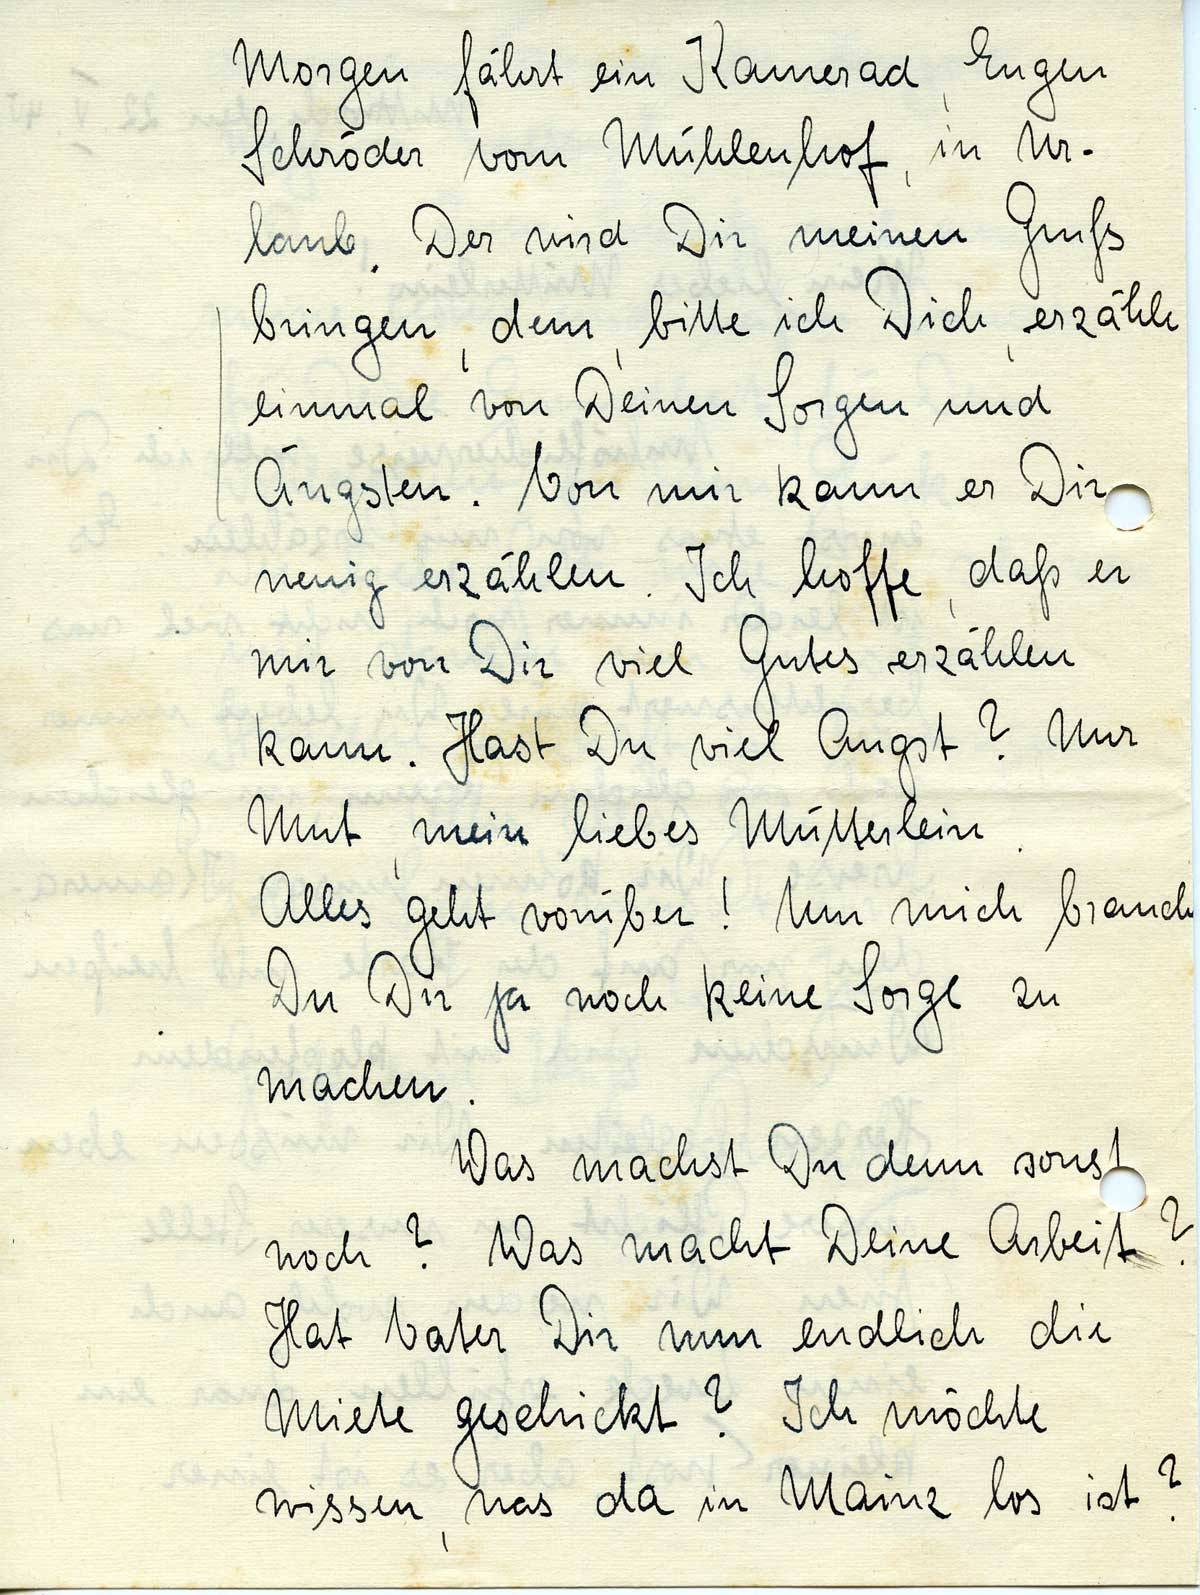 Morgen fährt ein Kamerad, Eugen
Schröder vom Mühlenhof, in Ur-
laub. Der wird Dir meinen Gruß
bringen, dem, bitte ich Dich, erzähle
einmal von Deinen Sorgen und
Ängsten. Von mir kann er Dir
wenig erzählen. Ich hoffe, daß er
mir von Dir viel Gutes erzählen
kann. Hast Du viel Angst? Nur
Mut, mein liebes Mütterlein.
Alles geht vorüber! Um mich brauch
Du Dir ja noch keine Sorge zu
machen.
Was machst Du denn sonst
noch? Was macht Deine Arbeit?
Hat Vater Dir nun endlich die
Miete geschickt? Ich möchte
wissen, was da in Mainz los ist?